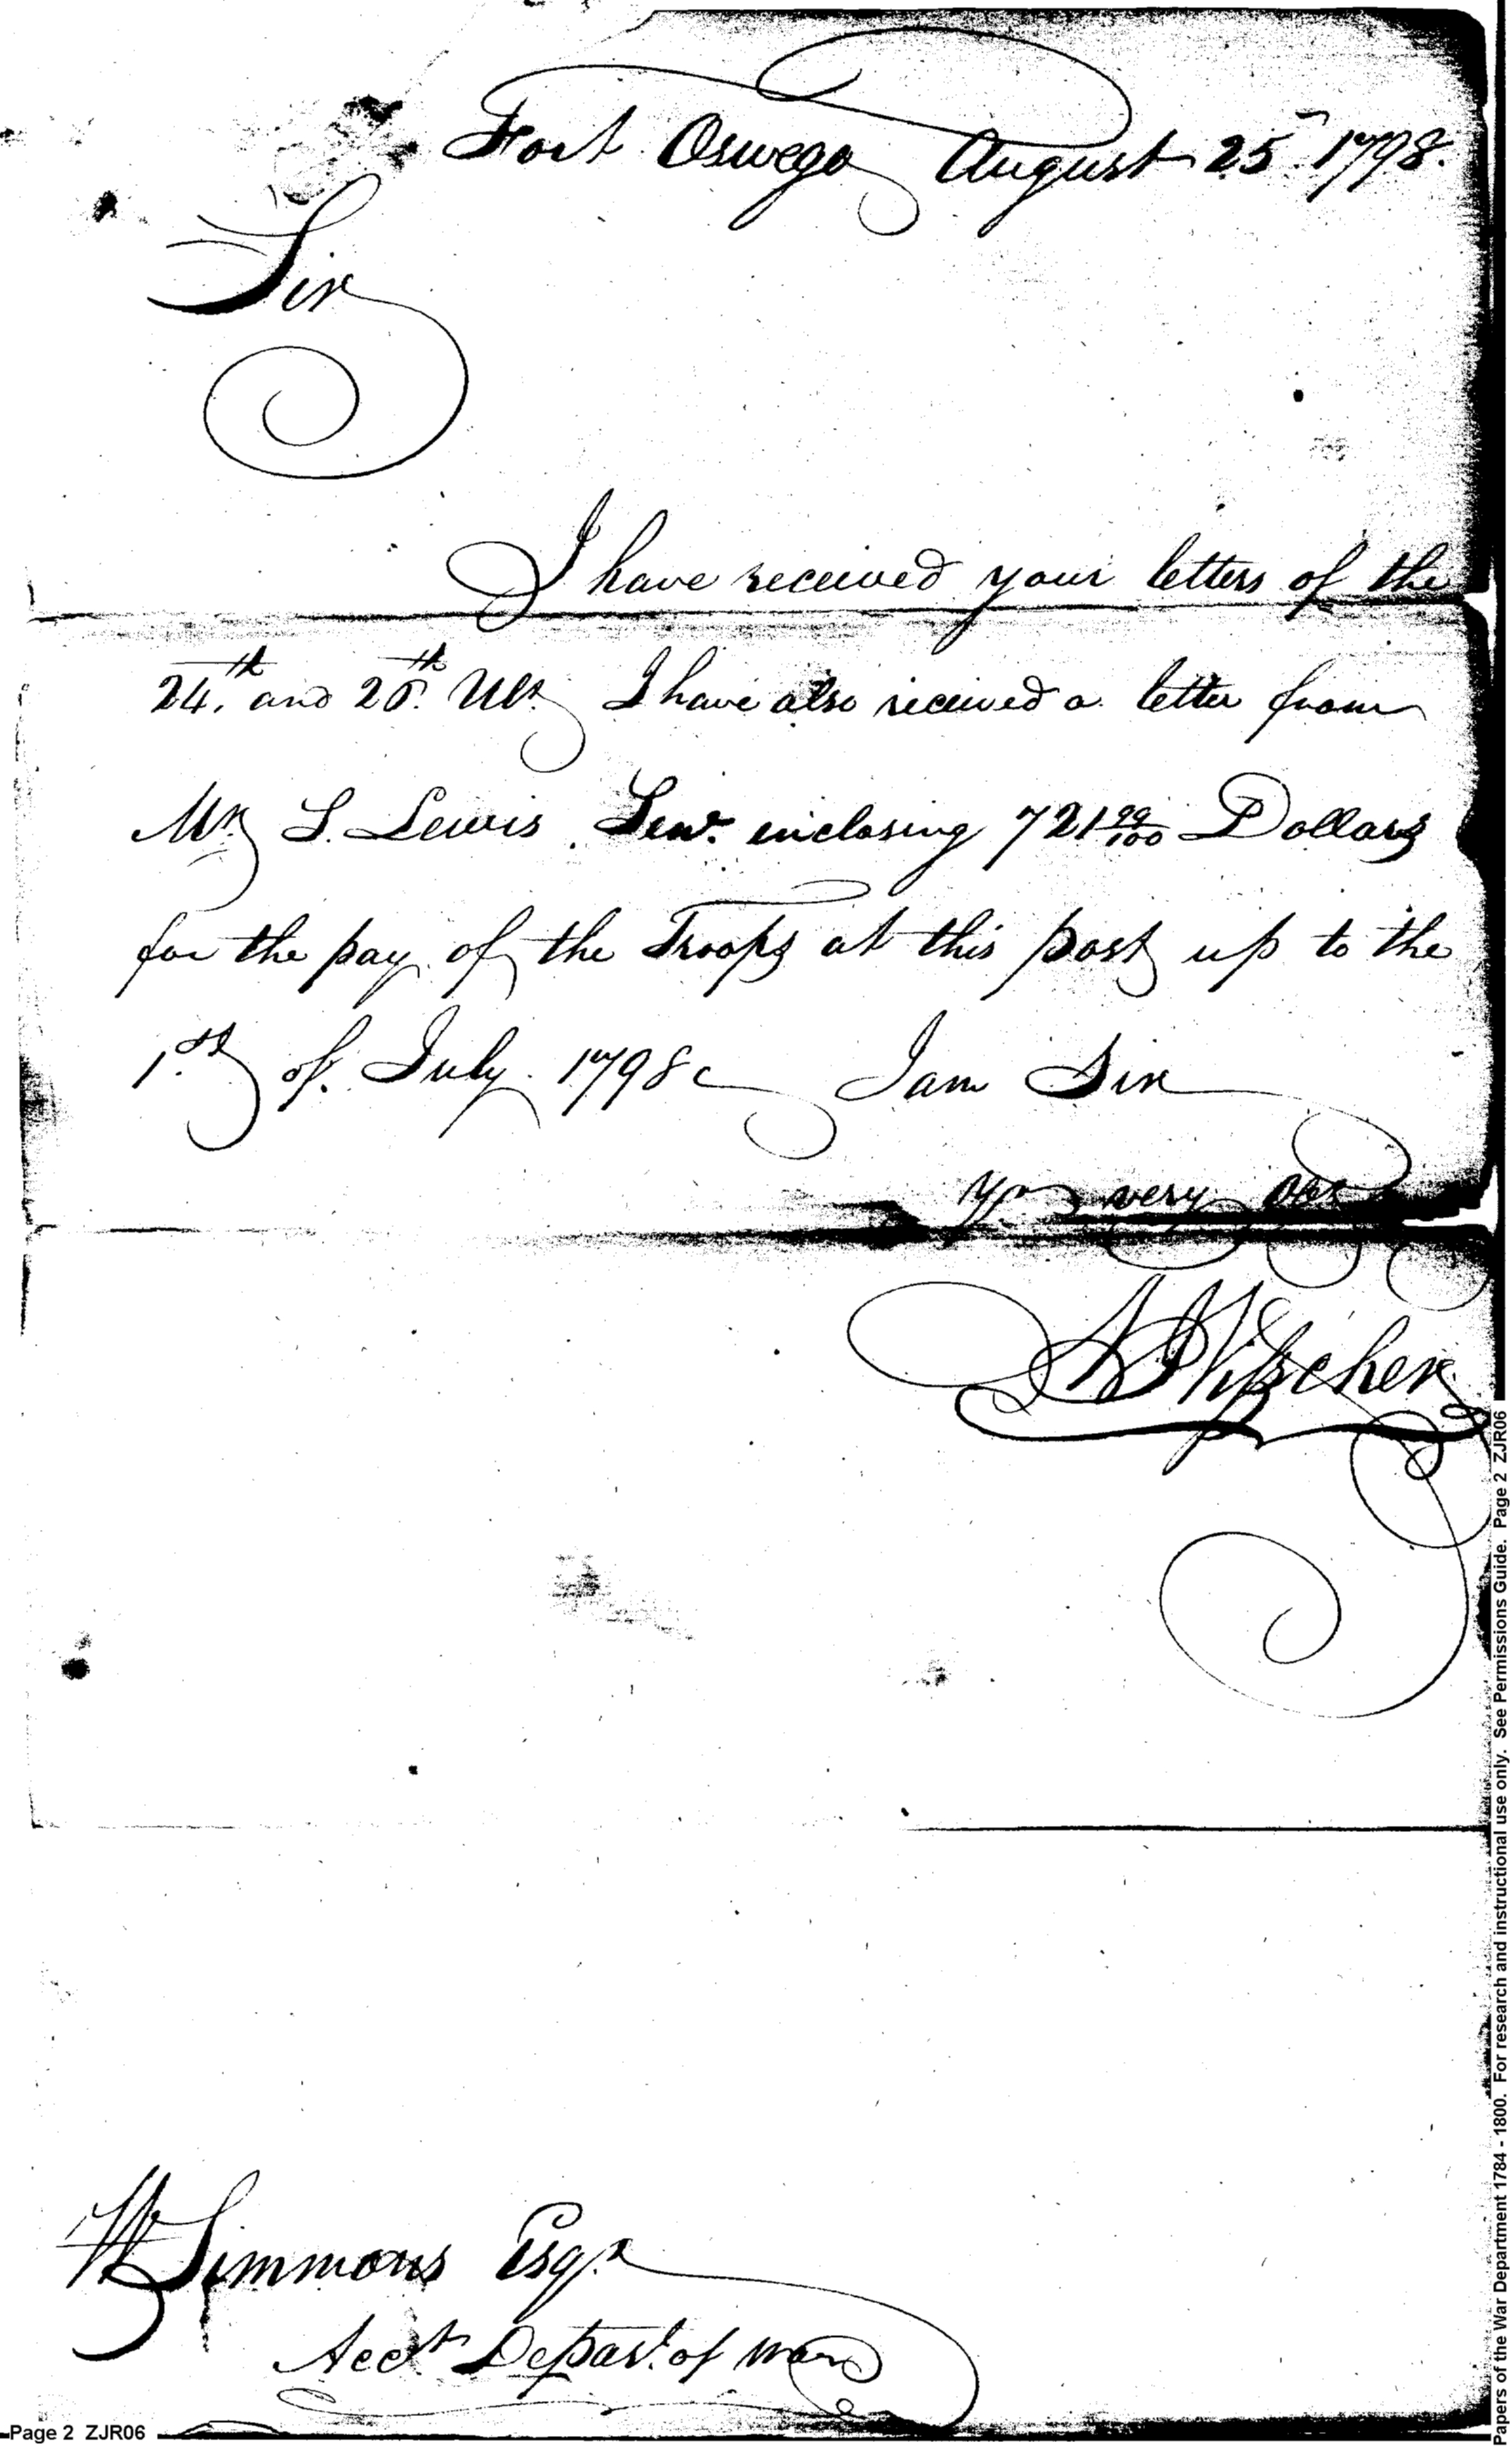 Fort Oswego August 25 1798.
Sir
I have received your letters of the
24th and 26th Ult. I have also received a letter from
Mr S. Lewis Senr. enclosing 721 99/100 Dollars
for the pay of the Troops at this post up to the
1st of July 1798 I am Sir
Yrs very Obt
W Simmons Esqr
Acct Depart. of War
Page 2 ZJR06
Papers of the War Department 1784 - 1800. For research and instructional use only. See Permissions Guide. Page 2 ZJR06